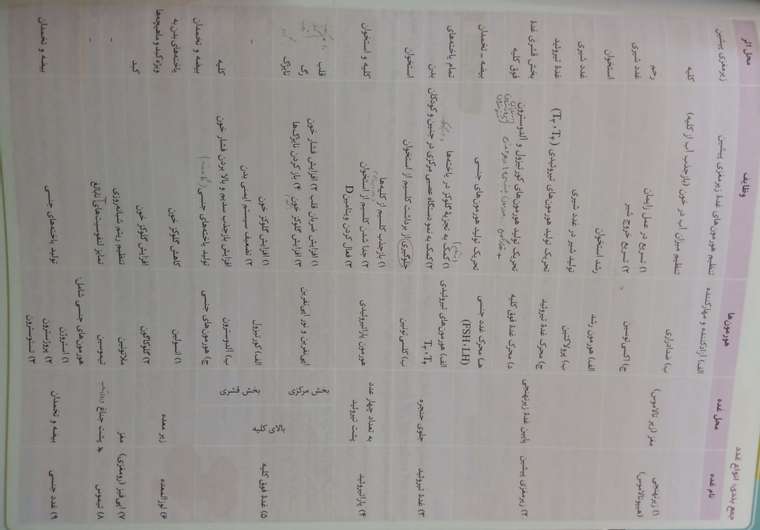 جمع بندی: انواع غدد
نام غده
محل غده
هورمون‌ها
وظایف
محل اثر
۱) زیرنهنجی (هیپوتالاموس)
مغز (زیر تالاموس)
الف) آزادکننده و مهارکننده
تنظیم هورمون‌های غدهٔ زیرمغزی پیشین
زیرمغزی پیشین
ب) ضدادراری
تنظیم میزان آب در خون (بازجذب آب از کلیه)
کلیه
ج) اکسی توسین
۱) تسریع در عمل زایمان
رحم
۲) تسریع خروج شیر
غدد شیری
۲) زیرمغزی پیشین
پایین غدهٔ زیرنهنجی
الف) هورمون رشد
رشد استخوان
استخوان
ب) پرولاکتین
تولید شیر در غدد شیری
غدد شیری
ج) محرک غدهٔ تیروئید
تحریک تولید هورمون‌های تیروئیدی (T۳ ، T۴)
غدهٔ تیروئید
د) محرک غدهٔ فوق کلیه
تحریک تولید هورمون‌های کورتیزول و آلدوسترون
بخش قشری غدهٔ فوق کلیه
هـ) محرک غدد جنسی (FSH ، LH)
تحریک تولید هورمون‌های جنسی
بیضه - تخمدان
۳) غدهٔ تیروئید
جلوی حنجره
الف) هورمون‌های تیروئیدی T۳ ، T۴
۱) کمک به تجزیهٔ گلوکز در یاخته‌ها
۲) کمک به نمو دستگاه عصبی مرکزی در جنین و کودکان
تمام یاخته‌های بدن
ب) کلسی تونین
جلوگیری از برداشت کلسیم از استخوان
استخوان
۴) پاراتیروئید
به تعداد چهار عدد پشت تیروئید
هورمون پاراتیروئیدی
۱) بازجذب کلسیم از کلیه‌ها
۲) جدا شدن کلسیم از استخوان
۳) فعال کردن ویتامین D
کلیه و استخوان
۵) غدهٔ فوق کلیه
بالای کلیه
بخش مرکزی
اپی‌نفرین و نور اپی‌نفرین
۱) افزایش ضربان قلب ۲) افزایش فشار خون
۳) افزایش گلوکز خون ۴) باز کردن نایژک‌ها
قلب
رگ
نایژک
بخش قشری
الف) کورتیزول
۱) افزایش گلوکز خون
۲) تضعیف سیستم ایمنی بدن
-
ب) آلدوسترون
افزایش بازجذب سدیم و بالا بردن فشار خون
کلیه
ج) هورمون‌های جنسی
تولید یاخته‌های جنسی
بیضه و تخمدان
۶) لوزالمعده
زیر معده
۱) انسولین
کاهش گلوکز خون
یاخته‌های بدن به ویژه کبد و ماهیچه‌ها
۲) گلوکاگون
افزایش گلوکز خون
کبد
۷) اپی‌فیز (رومغزی)
مغز
ملاتونین
تنظیم ریتم شبانه‌روزی
-
۸) تیموس
پشت جناغ
تیموسین
تمایز لنفوسیت‌های نابالغ
-
۹) غدد جنسی
بیضه و تخمدان
هورمون‌های جنسی شامل:
۱) استروژن
۲) پروژسترون
۳) تستوسترون
تولید یاخته‌های جنسی
بیضه و تخمدان